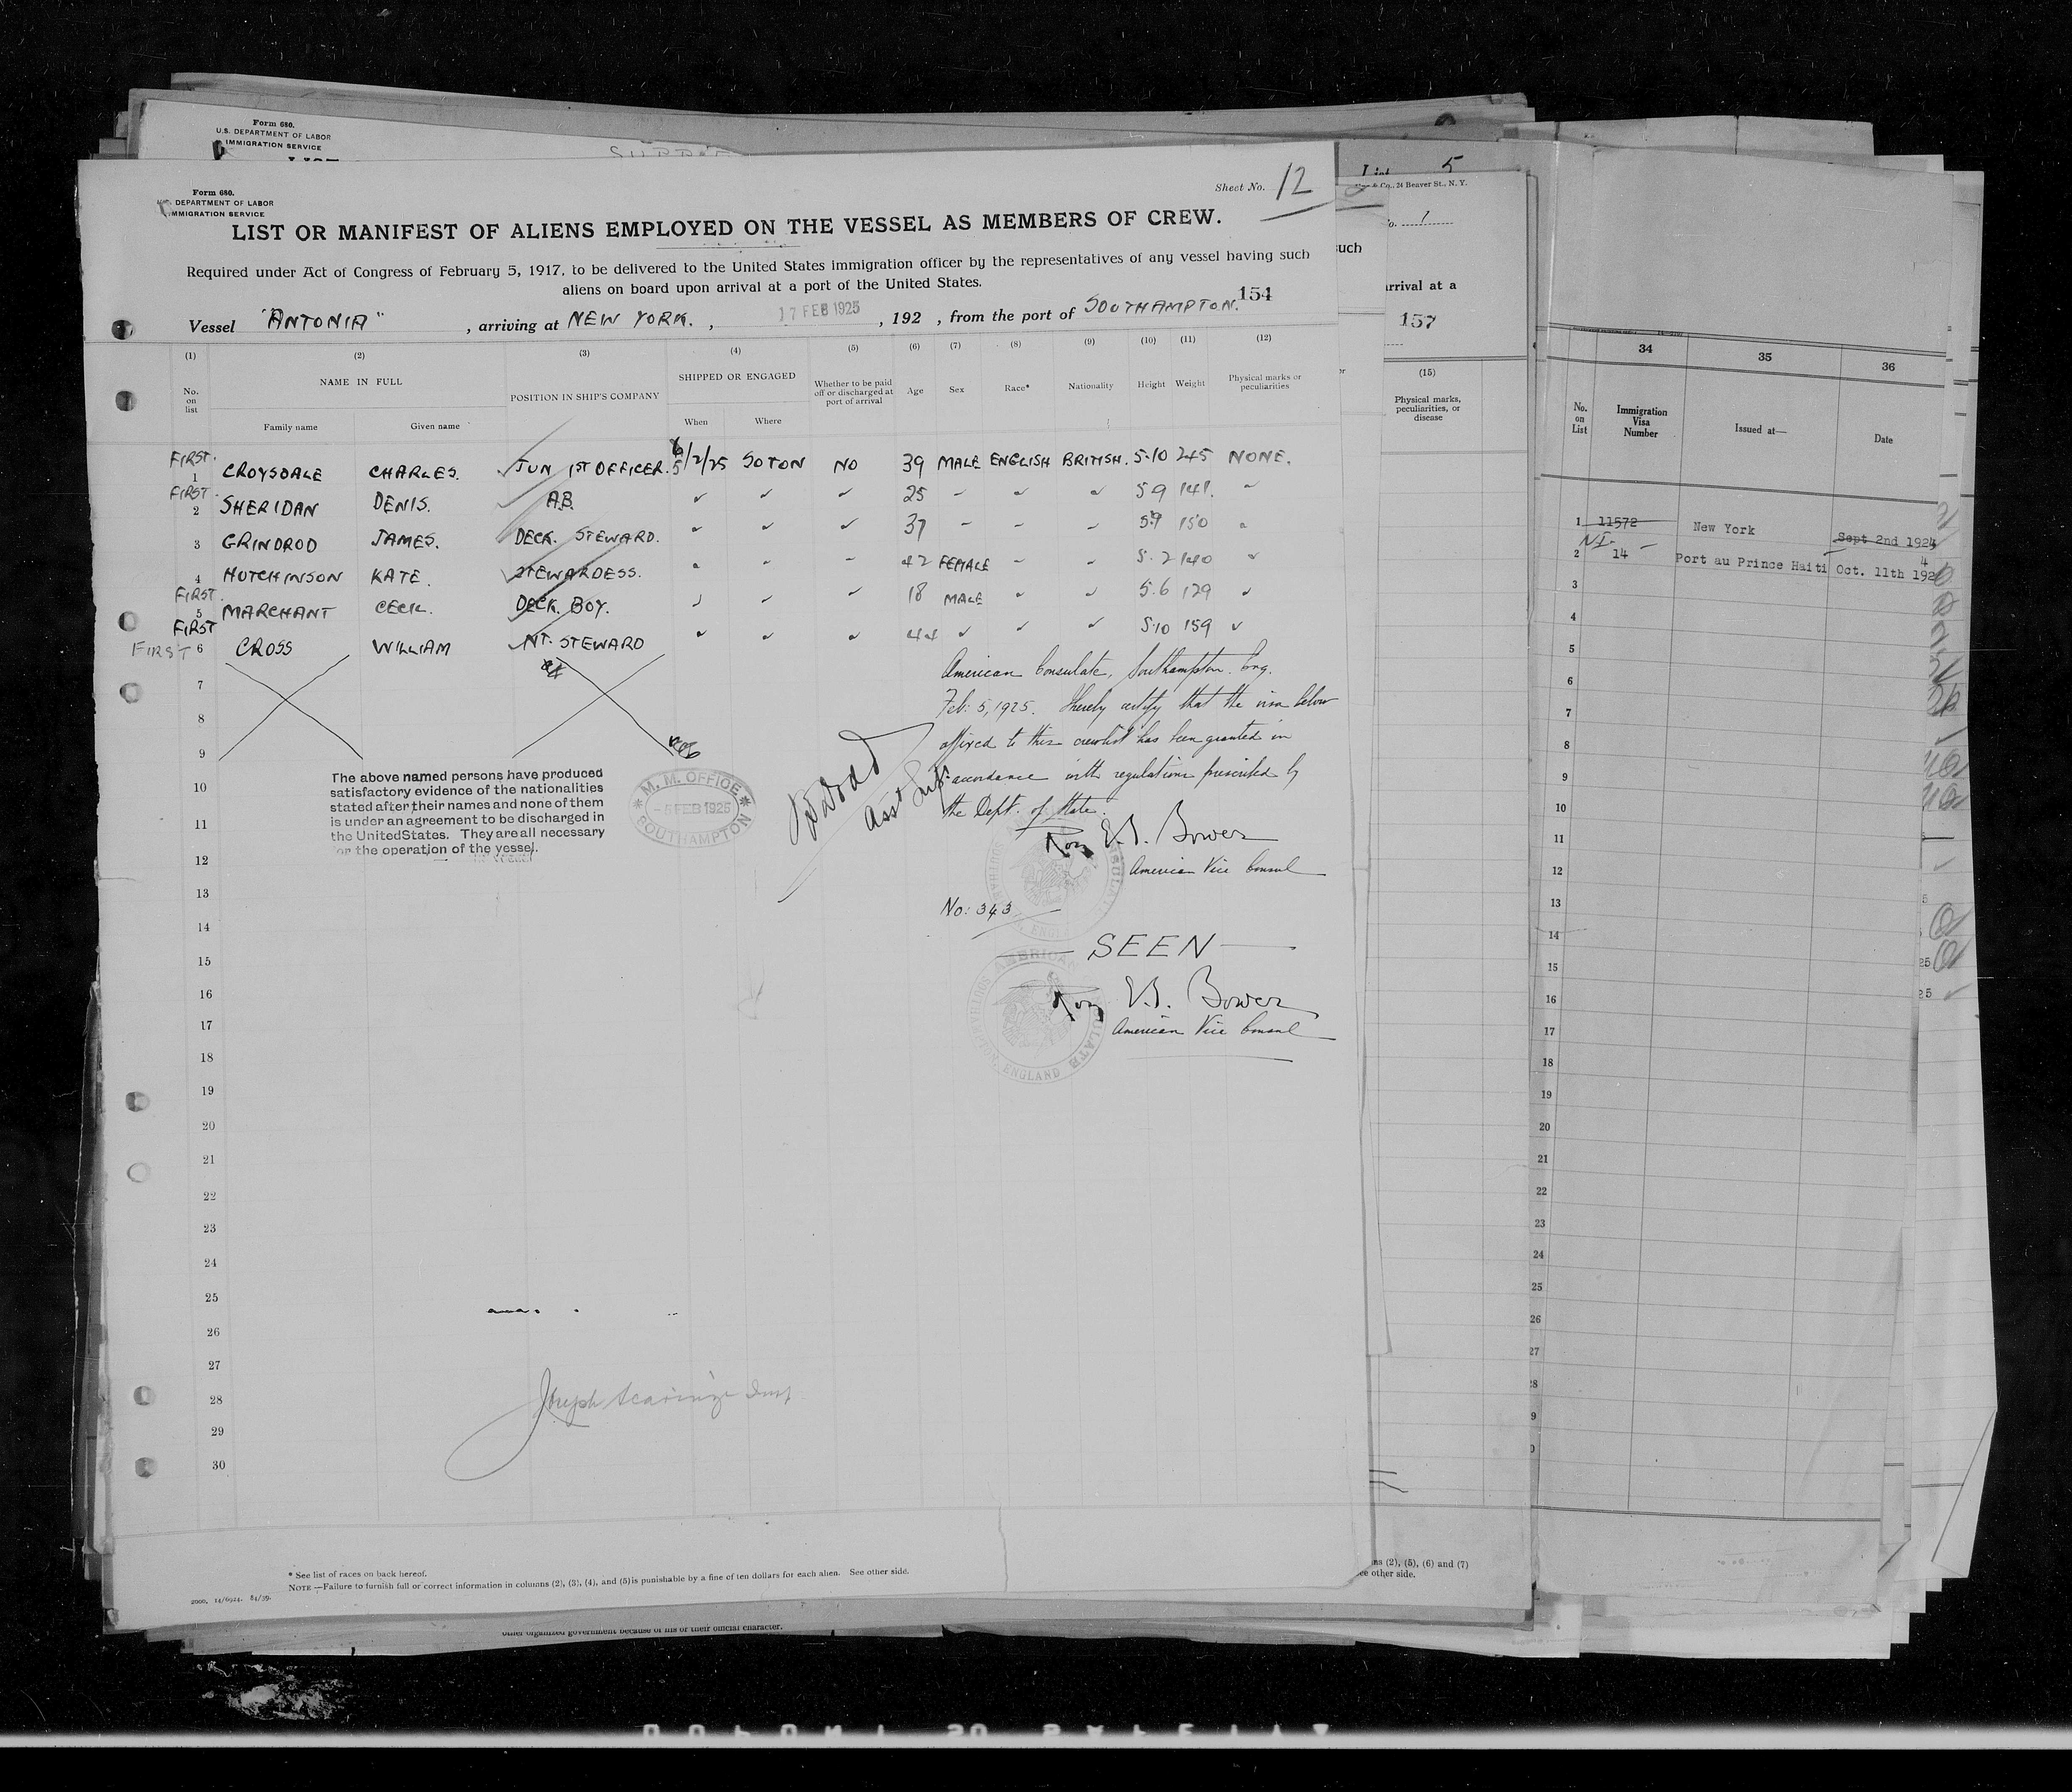 Form 680.
U.S. DEPARTMENT OF LABOR
IMMIGRATION SERVICE
List 5
24 Beaver St., N. Y.
Form 680.
DEPARTMENT OF LABOR
IMMIGRATION SERVICE
Sheet No. 12
LIST OR MANIFEST OF ALIENS EMPLOYED ON THE VESSEL AS MEMBERS OF CREW.
Required under Act of Congress of February 5, 1917, to be delivered to the United States immigration officer by the representatives of any vessel having such
aliens on board upon arrival at a port of the United States.
154
Vessel "ANTONIA", arriving at NEW YORK., 17 FEB 1925, 192 , from the port of SOUTHAMPTON.
(1) (2) (3) (4) (5) (6) (7) (8) (9) (10) (11) (12)
No. on list
NAME IN FULL
Family name Given name
POSITION IN SHIP'S COMPANY
SHIPPED OR ENGAGED
When Where
Whether to be paid off or discharged at port of arrival
Age Sex Race* Nationality Height Weight Physical marks or peculiarities
FIRST. 1 CROYSDALE CHARLES. JUN 1ST OFFICER. 6 5/2/25 SOTON NO 39 MALE ENGLISH BRITISH. 5·10 245 NONE.
FIRST. 2 SHERIDAN DENIS. A.B. ✓ ✓ ✓ 25 5 9 141. 
3 GRINDROD JAMES. DECK. STEWARD. ✓ ✓ ✓ 37 5.9 150
4 HUTCHINSON KATE. STEWARDESS. 42 FEMALE 5. 2 140
FIRST. 5 MARCHANT CECIL. DECK. BOY. 18 MALE 5.6 129 ✓
FIRST FIRST 6 CROSS WILLIAM NT. STEWARD ✓ ✓ ✓ 44 ✓ ✓ ✓ 5.10 159 ✓
7
8
9
10
11
12
13
14
15
16
17
18
19
20
21
22
23
24
25
26
27
28
29
30
The above named persons have produced
satisfactory evidence of the nationalities
stated after their names and none of them
is under an agreement to be discharged in
the UnitedStates. They are all necessary
for the operation of the vessel.
* M. M. OFFICE *
-5 FEB 1925
SOUTHAMPTON
Asst Surg.
American Consulate, Southampton. Eng.
Feb: 5, 1925. I hereby certify that the visa below
affixed to this crewlist has been granted in
accordance with regulations prescribed by
the Dept. of State.
Roy E.B. Bower
American Vice Consul
No: 343
SEEN
Roy E.B. Bower
American Vice Consul
AMERICAN CONSULATE
ENGLAND
Joseph Insp.
* See list of races on back hereof.
NOTE.—Failure to furnish full or correct information in columns (2), (3), (4), and (5) is punishable by a fine of ten dollars for each alien. See other side.
2000. 14/6924. 84/39.
other organized government because of his or their official character.
1
such
arrival at a
157
(15)
Physical marks, peculiarities, or disease
(2), (5), (6) and (7)
see other side.
34 35 36
No. on List
Immigration Visa Number
Issued at—
Date
1 11572 New York Sept 2nd 1924
2 NI- 14 Port au Prince Haiti Oct. 11th 1924
3
4
5
6
7
8
9
10
11
12
13
14
15
16
17
18
19
20
21
22
23
24
25
26
27